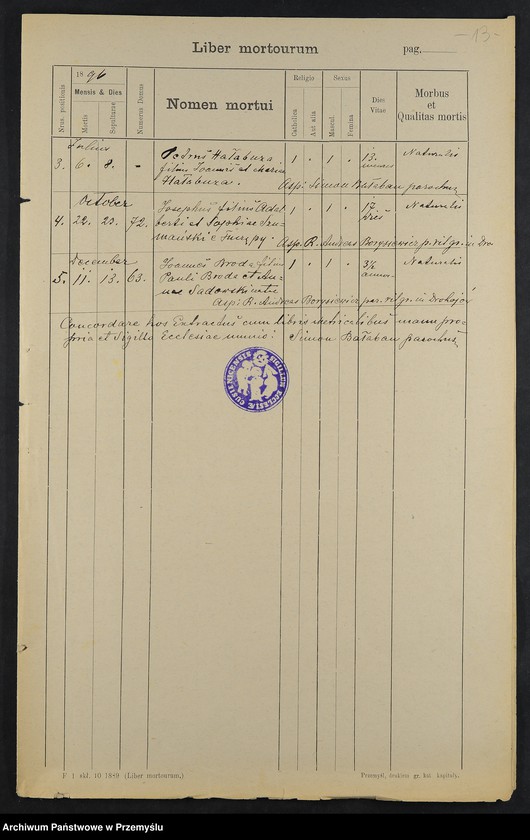 - 13 -
Liber mortuorum pag.
Nrus. positionis
1896
Mensis & Dies
Mortis
Sepulturae
Numerus Domus
Nomen mortui
Religio
Catholica
Aut alia
Sexus
Mascul.
Femina
Dies Vitae
Morbus et Qualitas mortis
Julius
3. 6. 8. - Petrus Hałabuza 1 " 1 " 13. Naturalis
filius Joannis et
Hałabuza. Asp: Simon Bałaban parochus
October
4. 22. 23. 72. Josephus filius Adal 1 " 1 " 17. Naturalis
berti et Sophiae Szu dies
mański e
Asp. R. Andreas Borysiewicz p. rit. gr. in Dro
December
5. 11. 13. 63. Joannes Broda filius 1 " 1 " 3½ Naturalis
Pauli Broda et An
nae Sadowski
Asp: R. Andreas Borysiewicz par. rit. gr. in Drohojów
Concordare hos Extractus cum libris metricalibus manu pro-
pria et Sigillo Ecclesiae munio: Simon Bałaban parochus
SIGILLUM ECCLESIAE
F 1 skł. 10 1889 (Liber mortuorum.)
Przemyśl, drukiem gr. kat. kapituły.
Archiwum Państwowe w Przemyślu